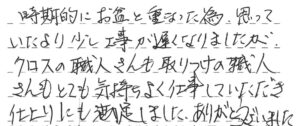 時期的にお盆と重なった為、思って
いたより少し工事が遅くなりましたが、
クロスの職人さんも取りつけの職人
さんもとても気持ちよく仕事していただき
仕上りにも満足しました。ありがとうございました